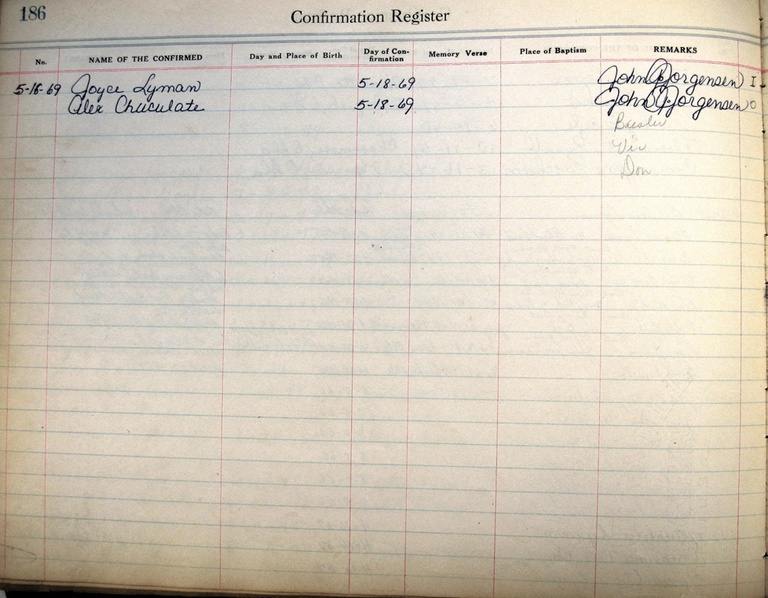 186
Confirmation Register
No. NAME OF THE CONFIRMED Day and Place of Birth Day of Con-firmation Memory Verse Place of Baptism REMARKS
5-18-69 Joyce Lyman 5-18-69 John Jorgensen I
Alex Chuculate 5-18-69 John Jorgensen O
Vic
Don